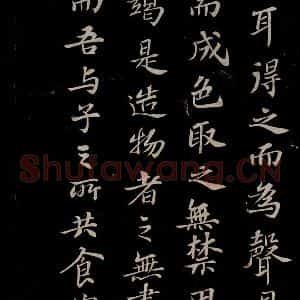 耳得之而為聲
而成色取之無禁
竭是造物者之無
而吾与子之所共食
Shufawang.CN